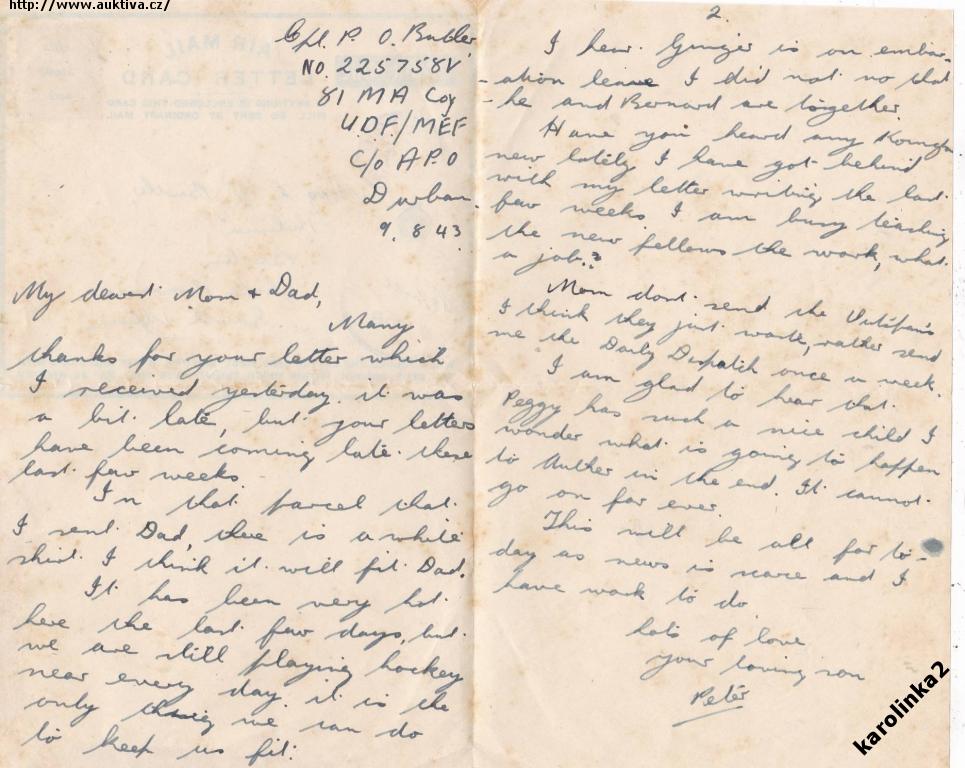 http://www.auktiva.cz/
Cpl. P. O. Butler.
NO. 225758V.
81 M A Coy
U.D.F/MEF
C/o A P O
Durban.
9. 8 43.
My dearest Mom + Dad,
Many
thanks for your letter which
I received yesterday. it was
a bit late, but your letters
have been coming late these
last few weeks.
In that parcel that
I sent Dad, there is a white
shirt. I think it will fit Dad.
It has been very hot
here the last few days, but
we are still playing hockey
near every day. it is the
only thing we can do
to keep us fit.
2.
I hear Ginger is on embar-
-ation leave I did not no that
-he and Bernard are together.
Have you heard any
new lately I have got behind
with my letter writing the last
few weeks I am busy teaching
the new fellows the work, what
a job.?
Mom dont send the
I think they just waste, rather send
me the Daily Dispatch once a week.
I am glad to hear that
Peggy has such a nice child I
wonder what is going to happen
to in the end. It cannot
go on for ever.
This will be all for to-
day as news is scarce and I
have work to do.
Lots of love
your loving son
Peter
karolinka2